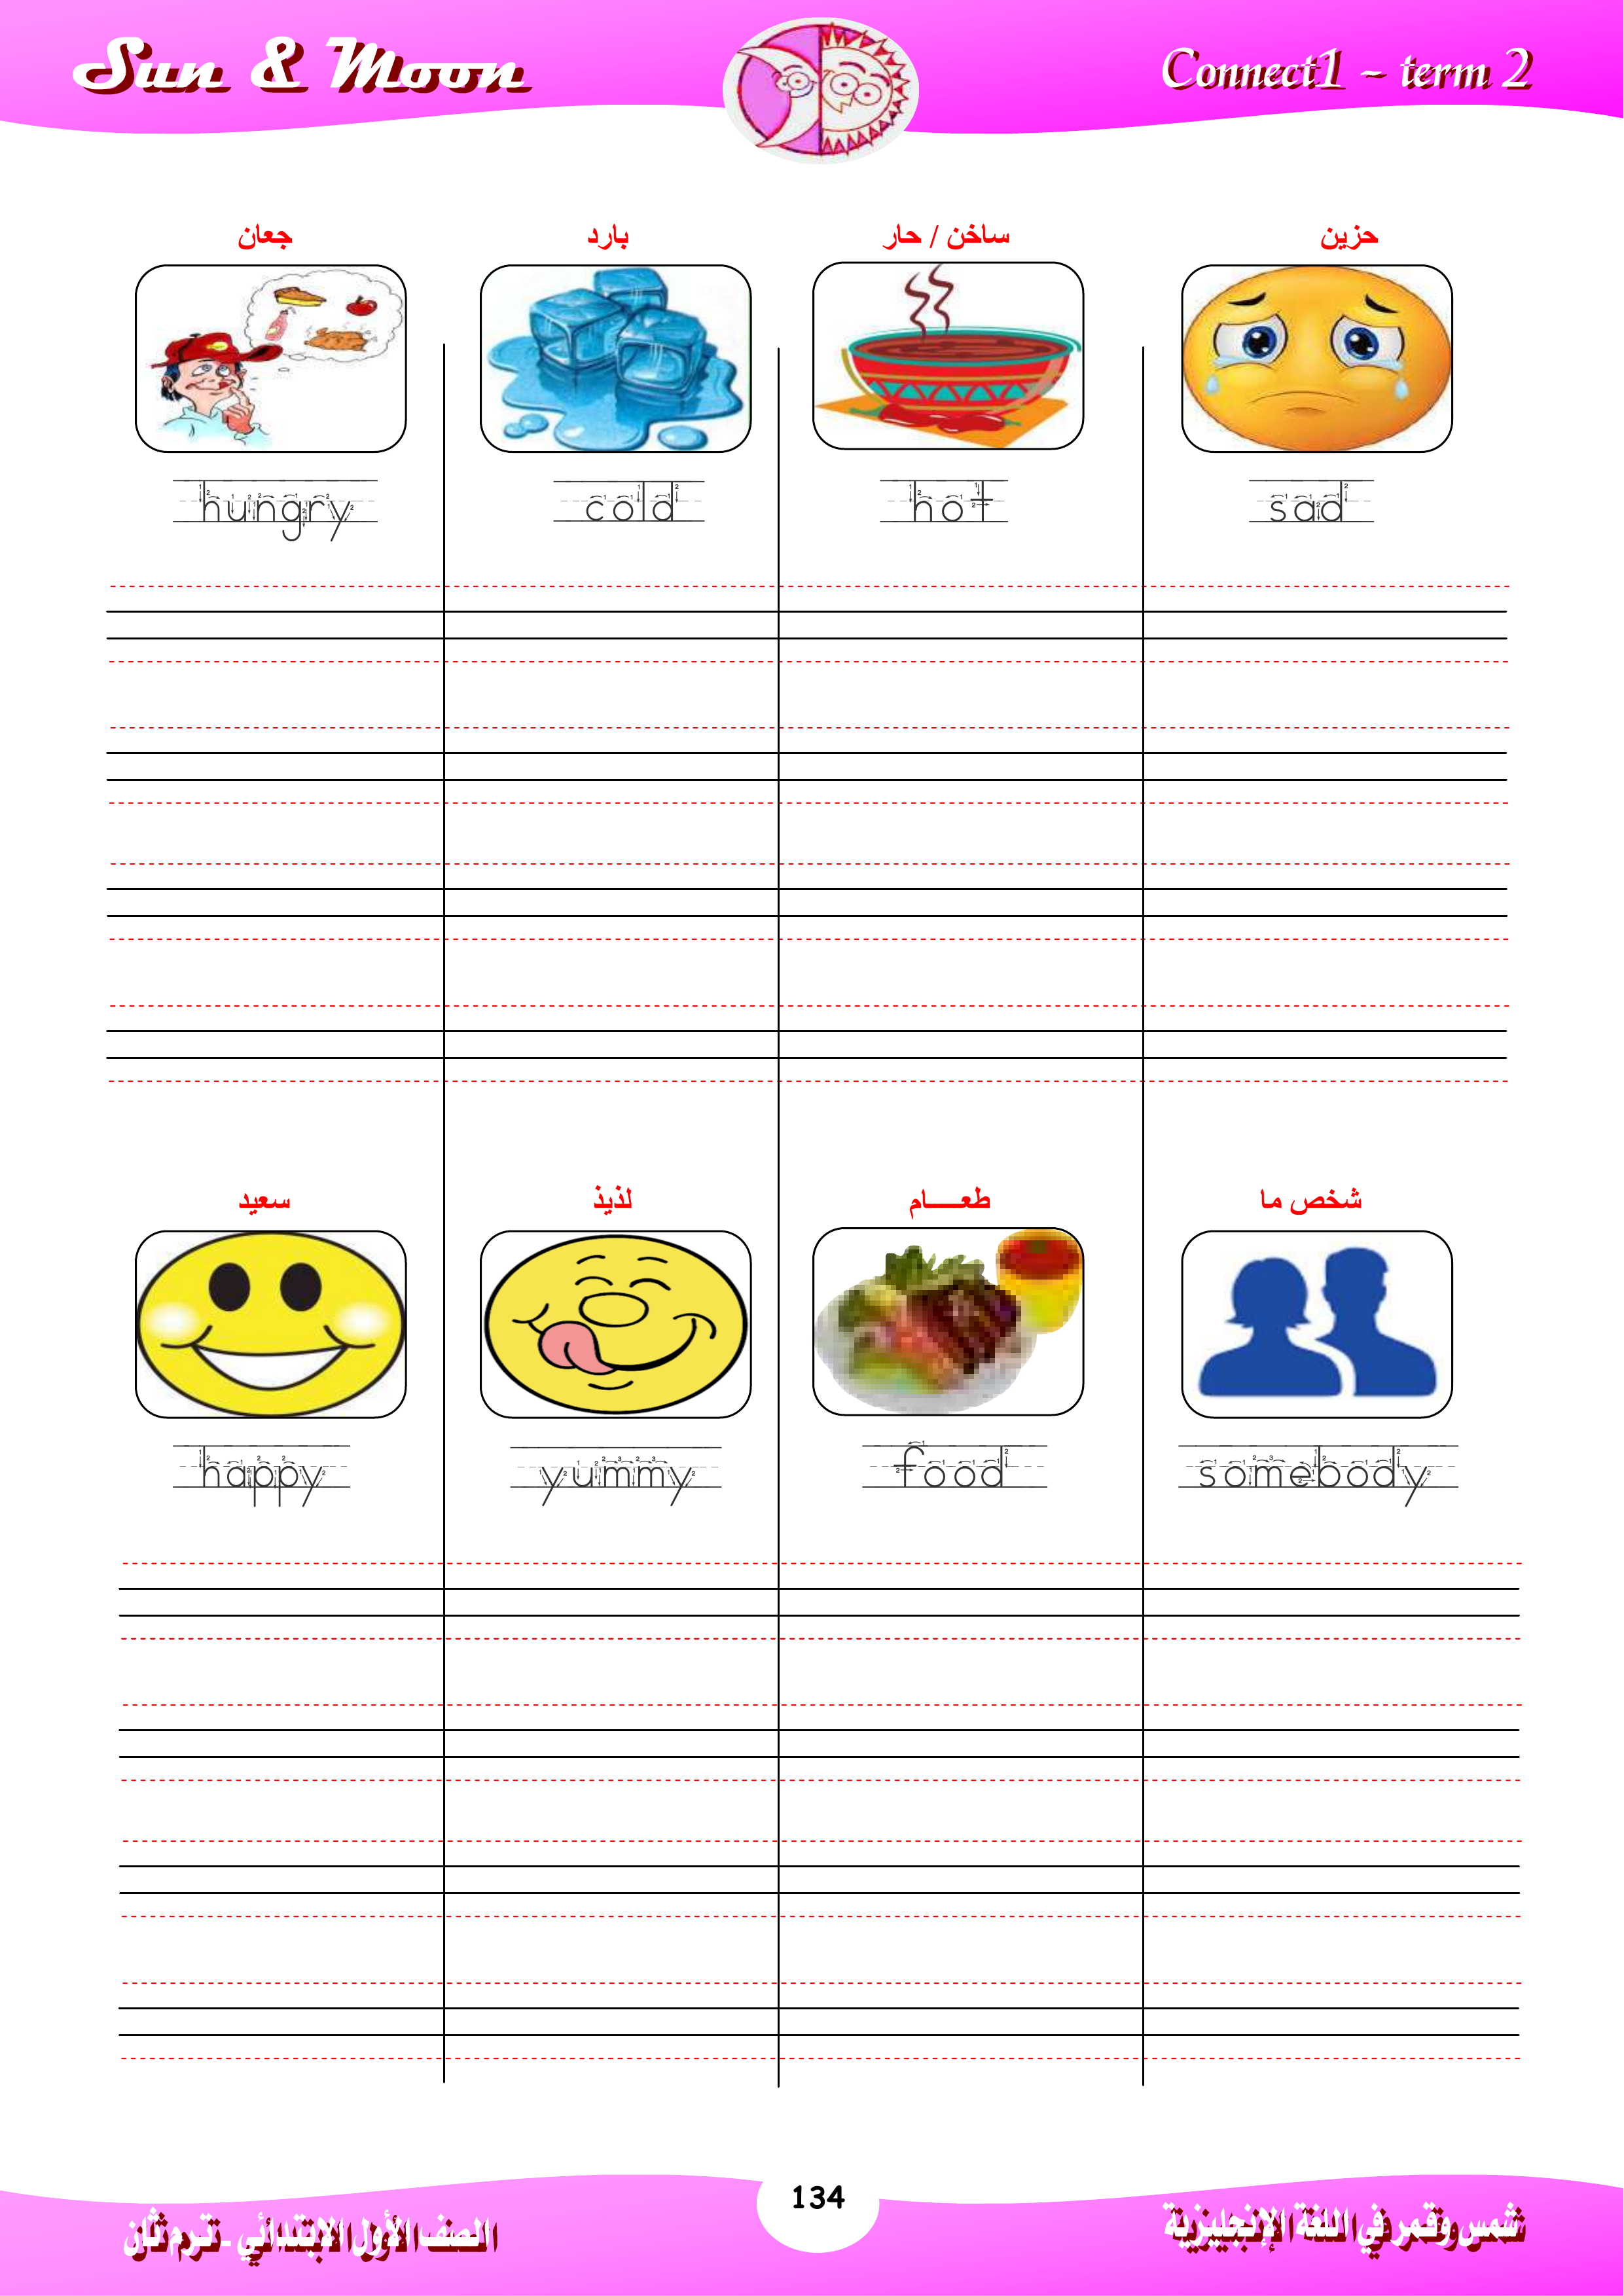 Sun & Moon
Connect1 – term 2
جعان
بارد
ساخن / حار
حزين
hungry
cold
hot
sad
سعيد
لذيذ
طعـــام
شخص ما
happy
yummy
food
somebody
134
الصف الأول الابتدائي - ترم ثان
شمس وقمر في اللغة الإنجليزية